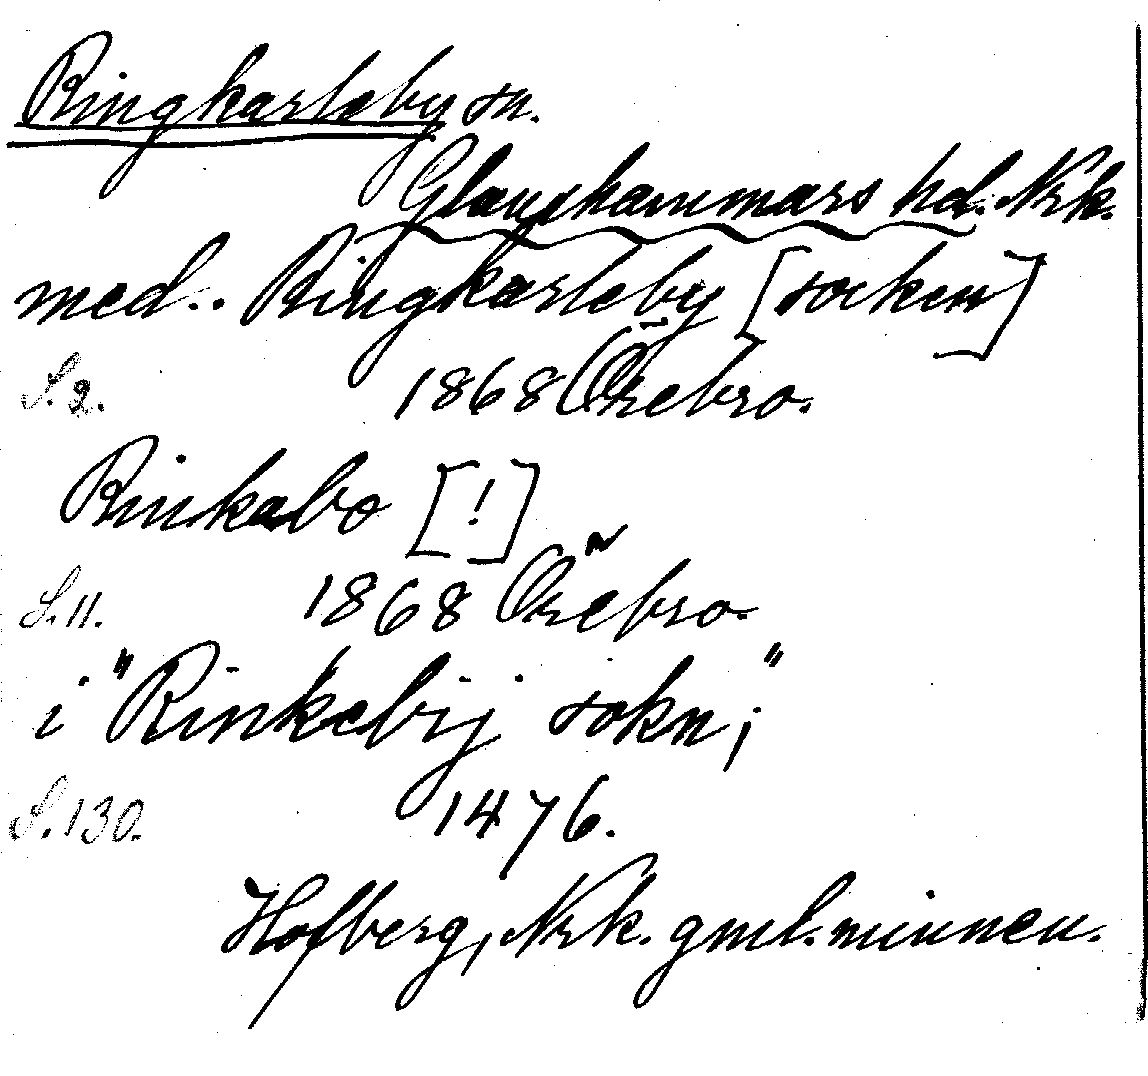 Ringkarleby sn.
Glanshammars hd. Nrk.
med.. Ringkarleby [socken]
S. 2. 1868 Örebro.
Rinkabo [!]
S. 11. 1868 Örebro.
i "Rinkebij sokn;"
S. 130. 1476.
Hofberg, Nrk. gml. minnen.